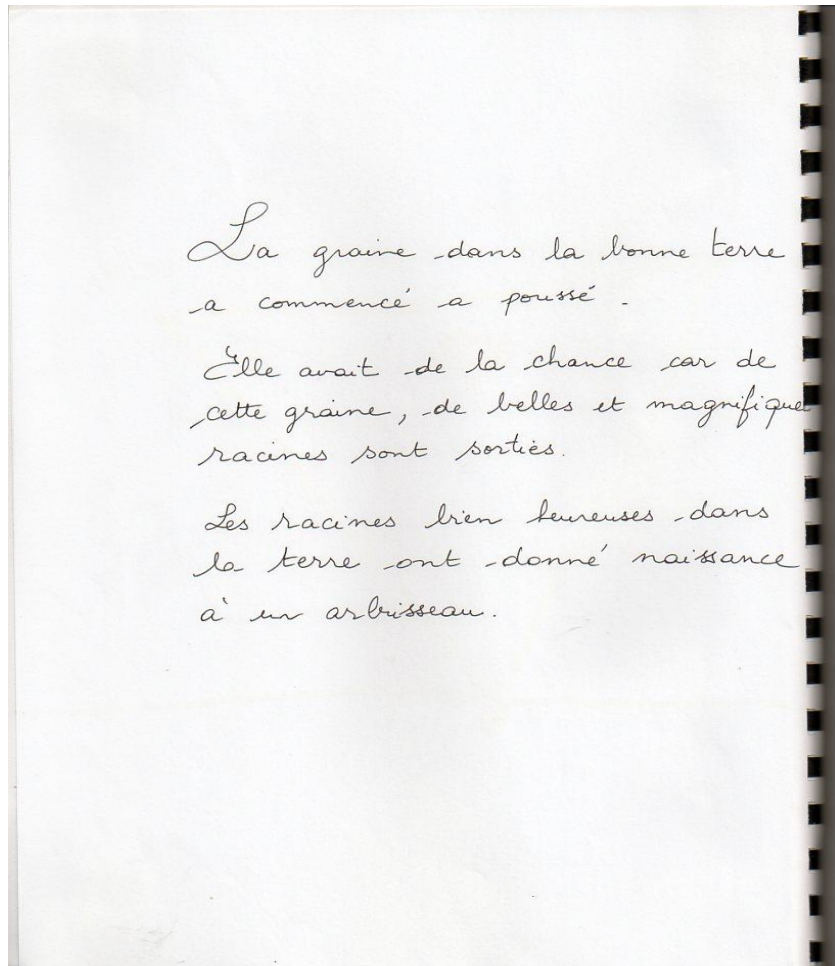 La graine dans la bonne terre
a commencé a poussé.
Elle avait de la chance car de
cette graine, de belles et magnifique
racines sont sorties.
Les racines bien heureuses dans
la terre ont donné naissance
à un arbrisseau.